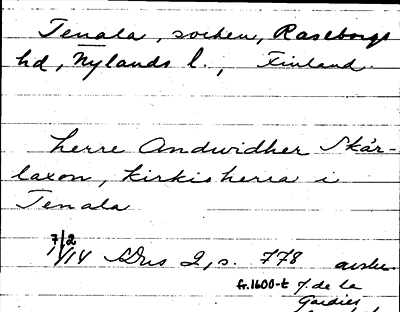 Tenala, socken, Raseborgs
hd, Nylands l., Finland.
herre Andwidher Skár-
laxon, kirkisherra i
Tenala
7/2
1414 Dus 2, s. 778 avskr.
fr. 1600-t J. de la
Gardies